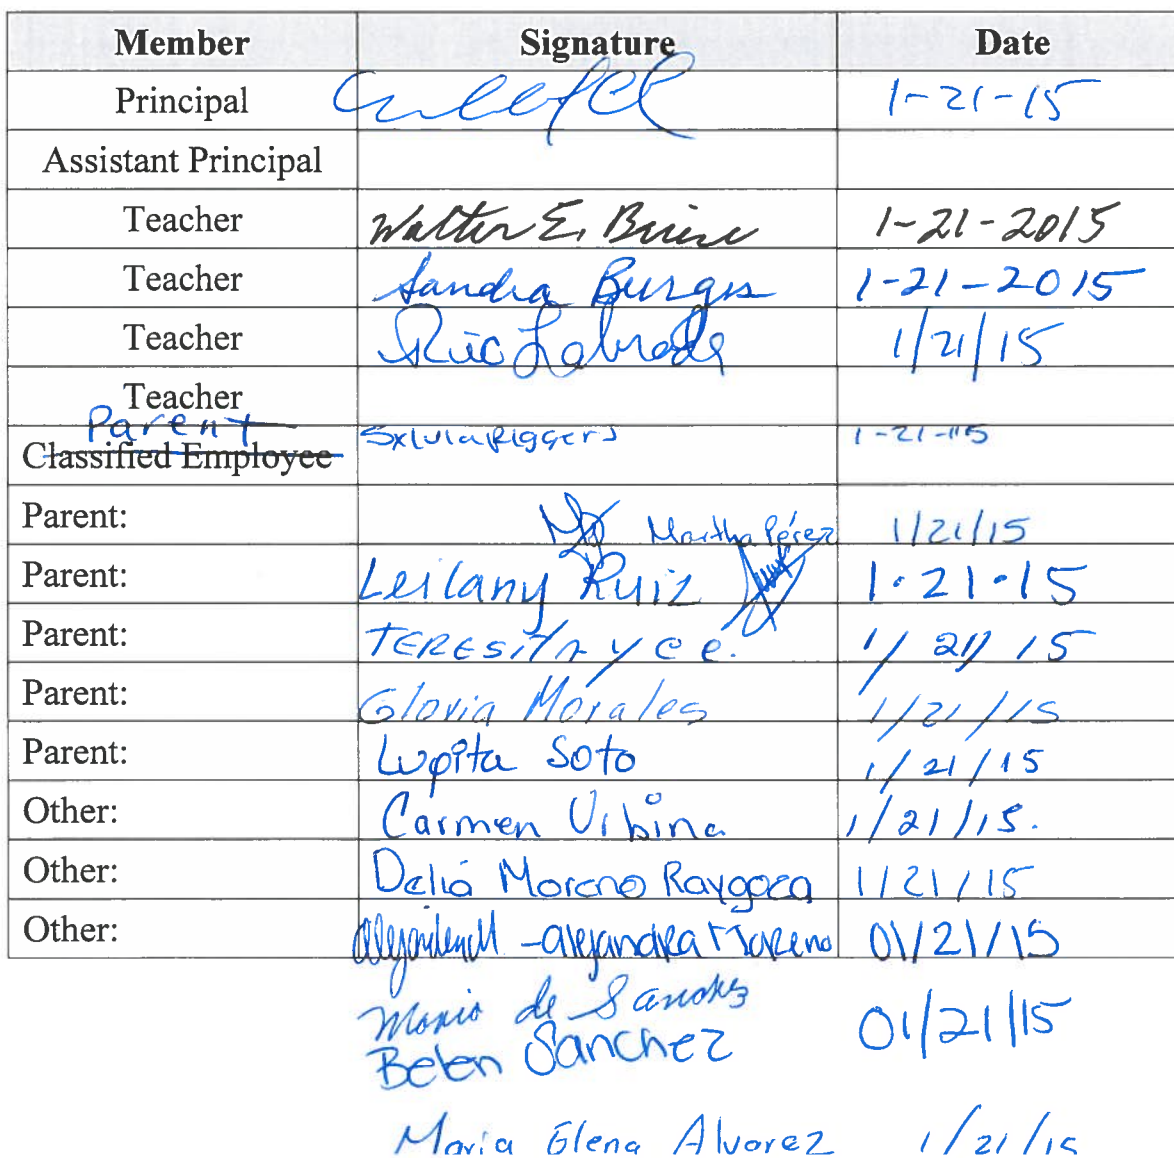 Member Signature Date
Principal 1-21-15
Assistant Principal
Teacher Walter E. 1-21-2015
Teacher Sandra Burgos 1-21-2015
Teacher 1/21/15
Teacher
Parent
Classified Employee 1-21-15
Parent: Martha Pérez 1/21/15
Parent: Leilany Ruiz 1·21·15
Parent: TERESITA y c e. 1/21/15
Parent: Gloria Morales 1/21/15
Parent: Lupita Soto 1/21/15
Other: Carmen Urbina 1/21/15.
Other: Delia Moreno Raygoza 1/21/15
Other: -alejandra Moreno 01/21/15
Maria de Sanchez
Belen Sanchez 01/21/15
Maria Elena Alvarez 1/21/15